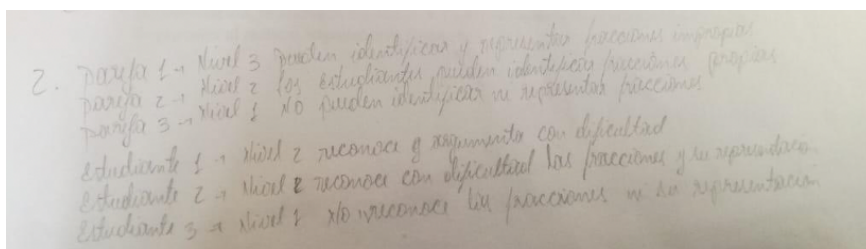 2. pareja 1 → Nivel 3 pueden identificar y representar fracciones impropias
pareja 2 → Nivel 2 los estudiantes pueden identificar fracciones propias
pareja 3 → Nivel 1 NO pueden identificar ni representar fracciones
Estudiante 1 → Nivel 2 reconoce y argumenta con dificultad
Estudiante 2 → Nivel 2 reconoce con dificultad las fracciones y su representación
Estudiante 3 → Nivel 1 No reconoce las fracciones ni su representación